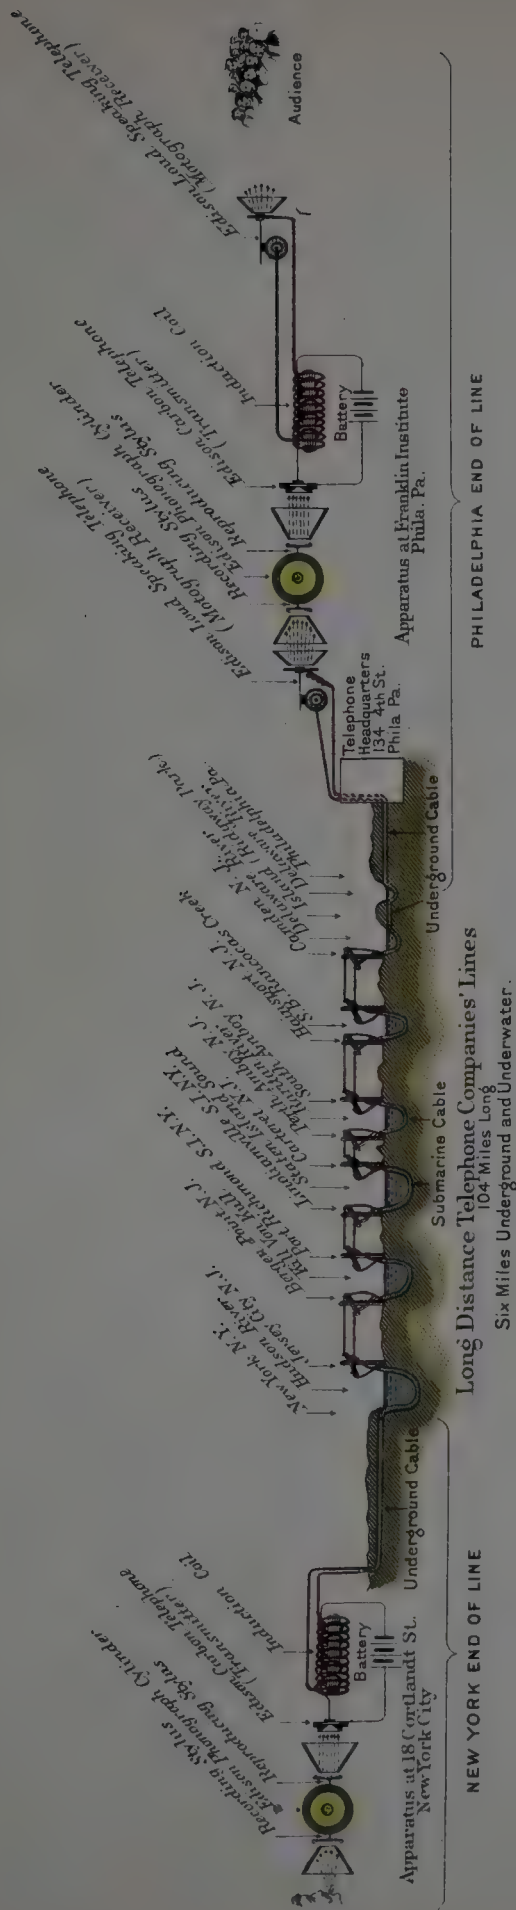 Recording Stylus
Edison Phonograph Cylinder
Reproducing Stylus
Edison Carbon Telephone
(Transmitter)
Induction Coil
Battery
Apparatus at 18 Cortlandt St.
New York City
NEW YORK END OF LINE
Underground Cable
New York N.Y.
Hudson River
Jersey City N.J.
Bergen Point N.J.
Kill Von Kull
Port Richmond S.I.N.Y.
Linoliumville S.I.N.Y.
Staten Island Sound
Carteret N.J.
Perth Amboy N.J.
Raritan River
South Amboy N.J.
Hainsport N.J.
S.B. Rancocas Creek
Camden N.J.
Delaware River
Island (Ridgway Park)
Delaware River
Philadelphia Pa.
Submarine Cable
Underground Cable
Long Distance Telephone Companies' Lines
104 Miles Long
Six Miles Underground and Underwater.
Telephone
Headquarters
134 4th St.
Phila Pa.
Edison Loud Speaking Telephone
(Motograph Receiver)
Recording Stylus
Edison Phonograph Cylinder
Reproducing Stylus
Edison Carbon Telephone
(Transmitter)
Induction Coil
Battery
Apparatus at Franklin Institute
Phila. Pa.
Edison Loud Speaking Telephone
(Motograph Receiver)
Audience
PHILADELPHIA END OF LINE